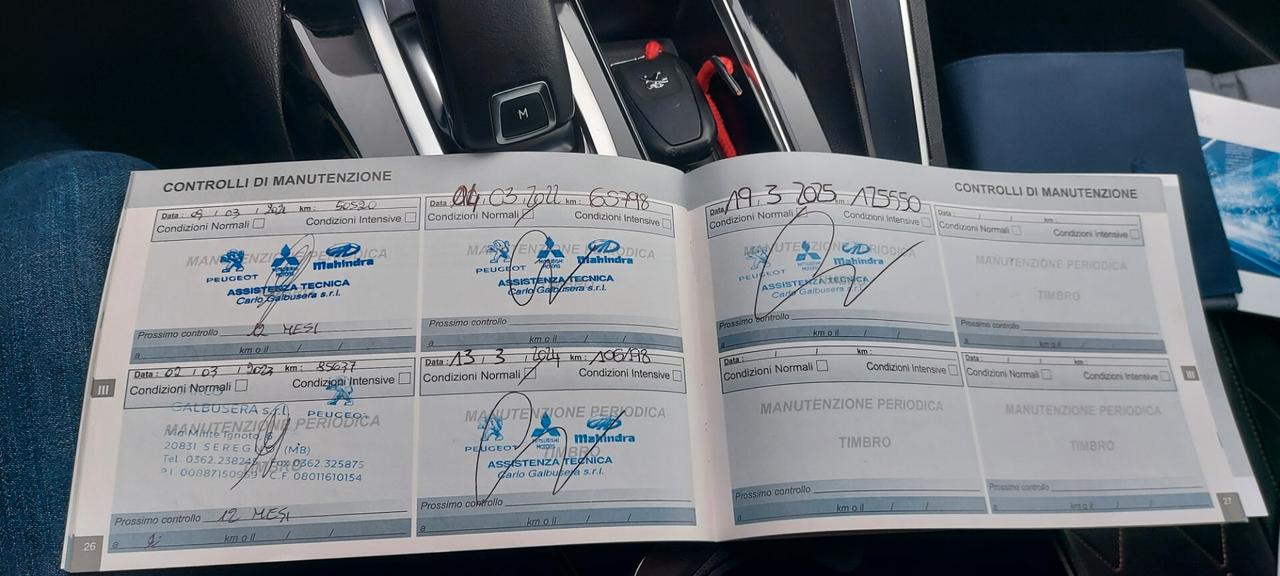 M
CONTROLLI DI MANUTENZIONE
Data : 09 / 03 / 2021 km : 50520
Condizioni Normali Condizioni Intensive
MANUTENZIONE PERIODICA
PEUGEOT MITSUBISHI MOTORS Mahindra
ASSISTENZA TECNICA
Carlo Galbusera s.r.l.
Prossimo controllo 12 MESI
a km o il / /
Data : 04 03.2022 km : 65798
Condizioni Normali Condizioni Intensive
MANUTENZIONE PERIODICA
PEUGEOT MITSUBISHI MOTORS Mahindra
ASSISTENZA TECNICA
Carlo Galbusera s.r.l.
Prossimo controllo
a km o il / /
Data : 02 / 03 / 2023 km : 85637
Condizioni Normali Condizioni Intensive
PEUGEOT
GALBUSERA s.r.l.
MANUTENZIONE PERIODICA
20831 SEREGNO (MB)
Tel. 0362.238247 Fax 0362.325875
C.F. 08011610154
Prossimo controllo 12 MESI
a km o il / /
Data : 13.3.2024 km : 106198
Condizioni Normali Condizioni Intensive
MANUTENZIONE PERIODICA
TIMBRO
PEUGEOT MITSUBISHI MOTORS Mahindra
ASSISTENZA TECNICA
Carlo Galbusera s.r.l.
Prossimo controllo
a km o il / /
III
26
CONTROLLI DI MANUTENZIONE
Data : 19.3 2025 km : 125550
Condizioni Normali Condizioni Intensive
MANUTENZIONE PERIODICA
PEUGEOT MITSUBISHI MOTORS Mahindra
ASSISTENZA TECNICA
Carlo Galbusera s.r.l.
Prossimo controllo
a km o il / /
Data : / / km :
Condizioni Normali Condizioni Intensive
MANUTENZIONE PERIODICA
TIMBRO
Prossimo controllo
a km o il / /
Data : / / km :
Condizioni Normali Condizioni Intensive
MANUTENZIONE PERIODICA
TIMBRO
Prossimo controllo
a km o il / /
Data : / / km :
Condizioni Normali Condizioni Intensive
MANUTENZIONE PERIODICA
TIMBRO
Prossimo controllo
a km o il / /
III
27